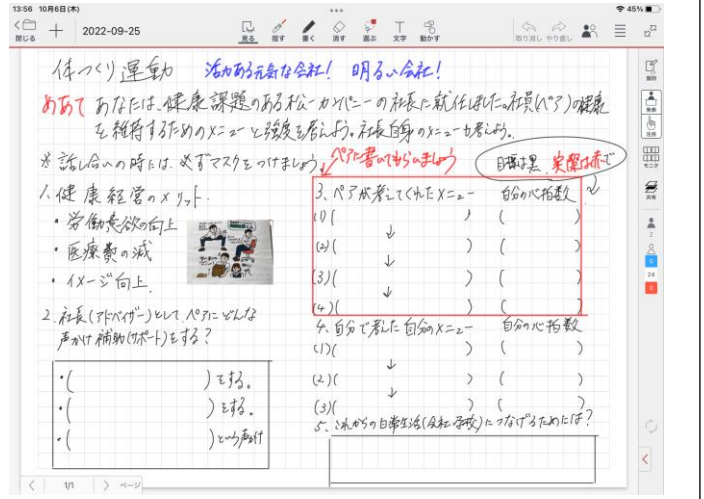 13:56 10月6日(木)
45%
閉じる
2022-09-25
見る
指す
書く
消す
選ぶ
文字
動かす
取り消し
やり直し
体つくり運動 活力ある元気な会社! 明るい会社!
めあて あなたは、健康課題のある松一カンパニーの社長に就任しました。社員(ペア)の健康
を維持するためのメニューと強度を考えよう。社長自身のメニューも考えよう。
※話し合いの時には、必ずマスクをつけましょう。
ペアに書いてもらいましょう
目標は黒、実際は赤で
1. 健康経営のメリット
・労働意欲の向上
・医療費の減
・イメージ向上
2. 社長(アドバイザー)として、ペアにどんな
声かけ補助(サポート)をする?
・( )をする。
・( )をする。
・( )という声かけ
3. ペアが考えてくれたメニュー 自分の心拍数
(1)( ) ( )
↓
(2)( ) ( )
↓
(3)( ) ( )
↓
(4)( ) ( )
4. 自分で考えた自分のメニュー 自分の心拍数
(1)( ) ( )
↓
(2)( ) ( )
↓
(3)( ) ( )
5. これからの日常生活(会社・学校)につなげるためには?
モニタ
共有
2
24
1/1 ページ